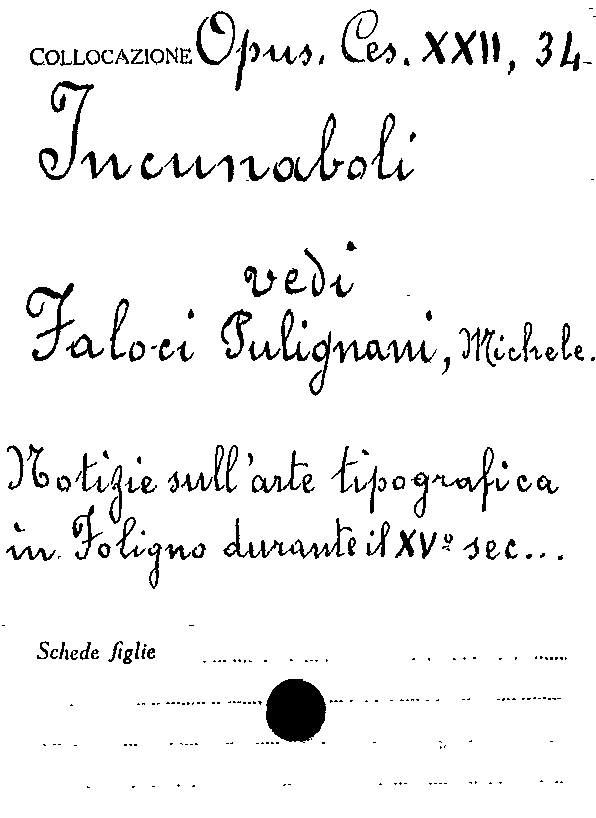 COLLOCAZIONE Opus. Ces. XXII, 34
Incunaboli
vedi
Faloci Pulignani, Michele.
Notizie sull'arte tipografica
in Foligno durante il XVº sec...
Schede figlie